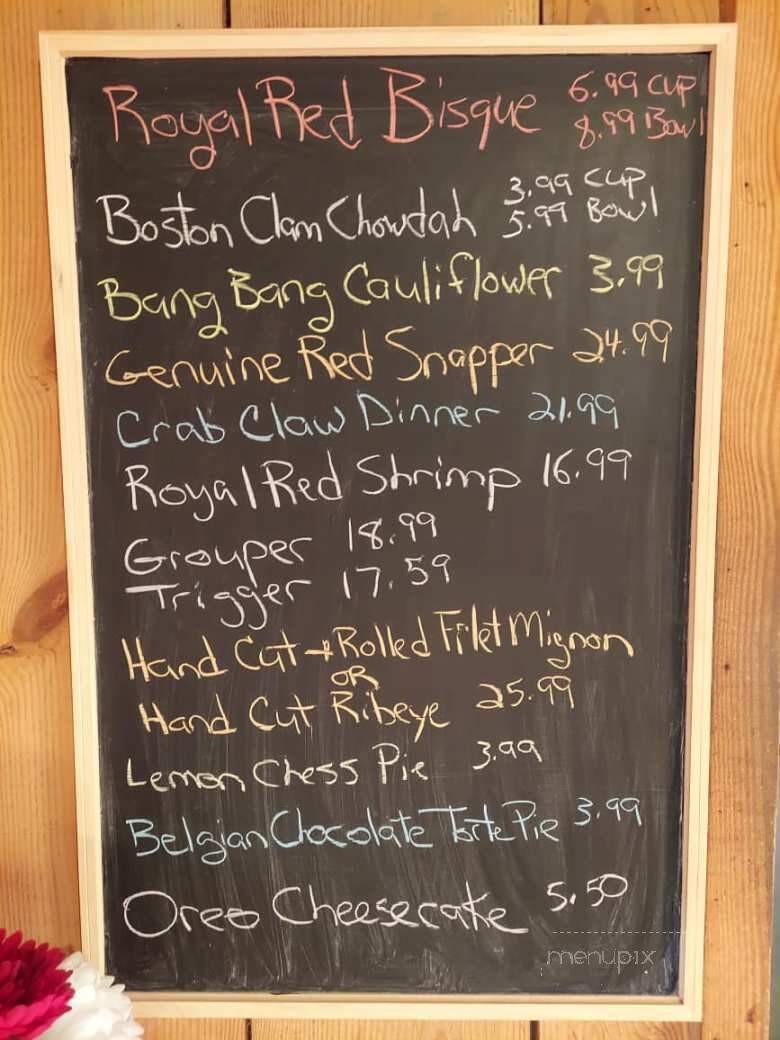 Royal Red Bisque 6.99 Cup
8.99 Bowl
Boston Clam Chowdah 3.99 Cup
5.99 Bowl
Bang Bang Cauliflower 3.99
Genuine Red Snapper 24.99
Crab Claw Dinner 21.99
Royal Red Shrimp 16.99
Grouper 18.99
Trigger 17.59
Hand Cut + Rolled Filet Mignon
OR
Hand Cut Ribeye 25.99
Lemon Chess Pie 3.99
Belgian Chocolate Torte Pie 3.99
Oreo Cheesecake 5.50
menupix